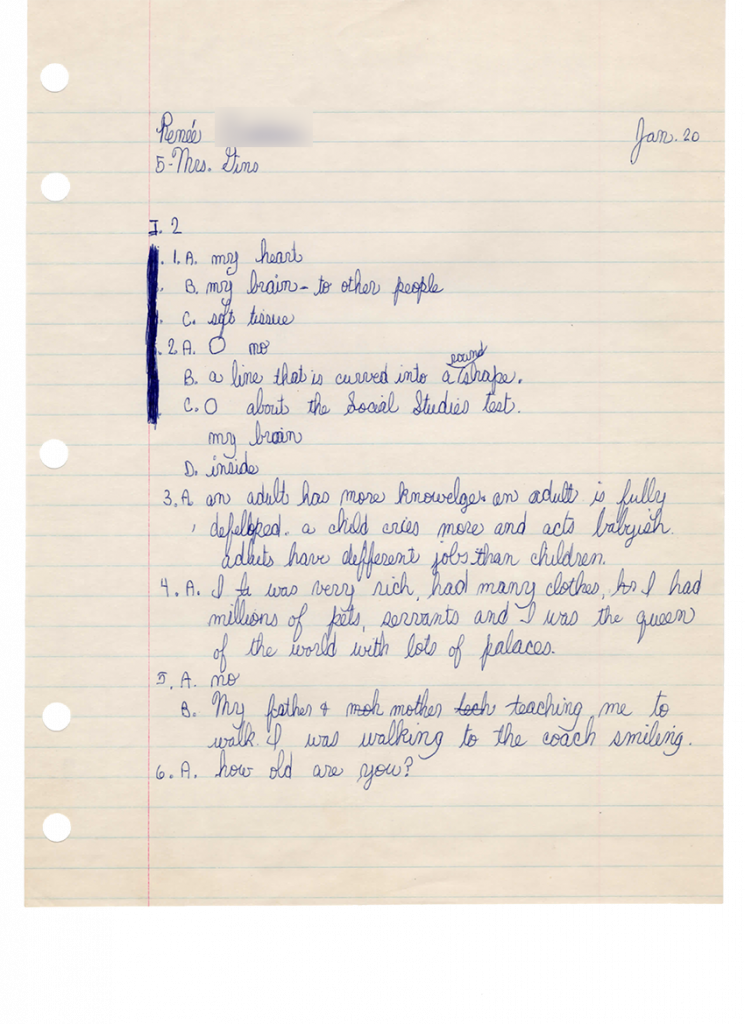 Renée
Jan. 20
5-Mrs. Gins
I. 2
1. A. my heart
B. my brain - to other people
C. soft tissue
2. A. O no
round
B. a line that is curved into a shape.
C. O about the Social Studies test.
my brain
D. inside
3. A an adult has more knowelge. an adult is fully
defelpped. a child cries more and acts babyish.
adults have defferent jobs than children.
4. A. I was very rich, had many clothes, I had
millions of pets, servants and I was the queen
of the world with lots of palaces.
5. A. no
B. My father & moh mother tech teaching me to
walk. I was walking to the coach smiling.
6. A. how old are you?